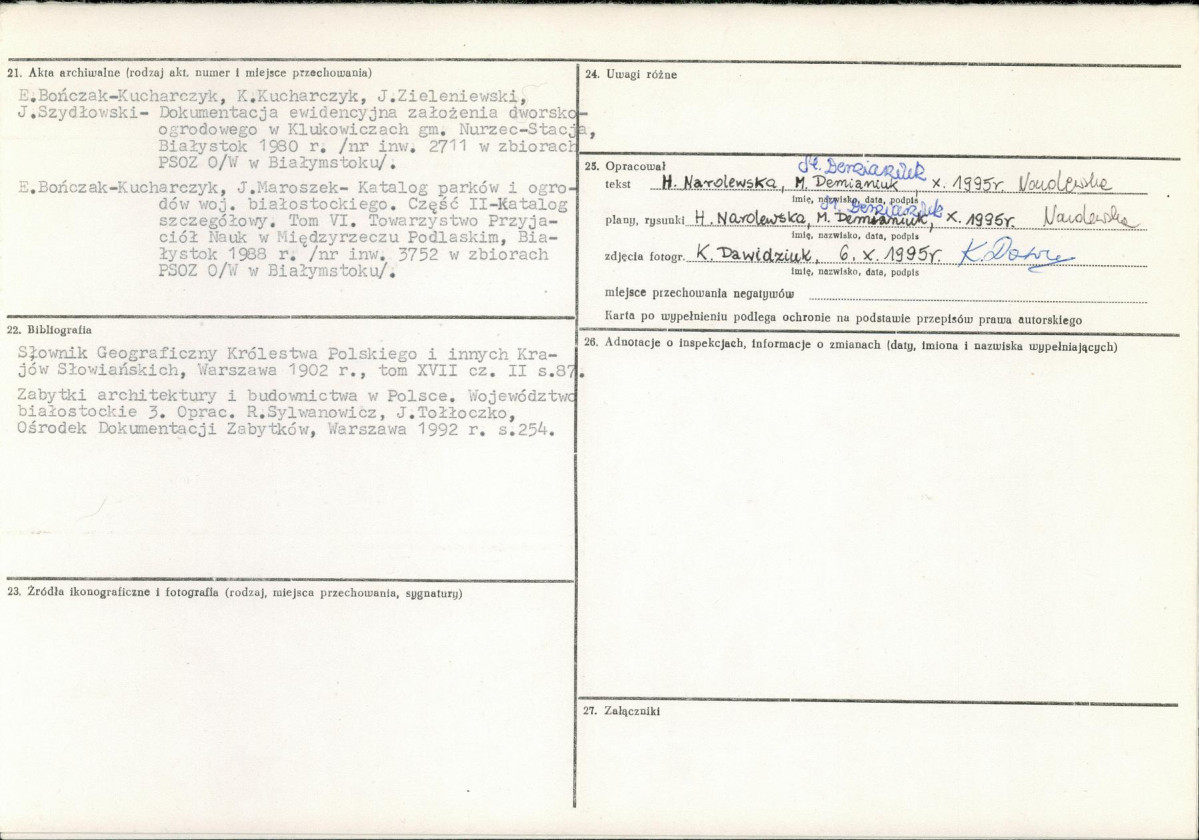 21. Akta archiwalne (rodzaj akt, numer i miejsce przechowania)
E.Bończak-Kucharczyk, K.Kucharczyk, J.Zieleniewski,
J.Szydłowski- Dokumentacja ewidencyjna założenia dworsko-
ogrodowego w Klukowiczach gm. Nurzec-Stacja,
Białystok 1980 r. /nr inw. 2711 w zbiorach
PSOZ O/W w Białymstoku/.
E.Bończak-Kucharczyk, J.Maroszek- Katalog parków i ogro-
dów woj. białostockiego. Część II-Katalog
szczegółowy. Tom VI. Towarzystwo Przyja-
ciół Nauk w Międzyrzeczu Podlaskim, Bia-
łystok 1988 r. /nr inw. 3752 w zbiorach
PSOZ O/W w Białymstoku/.
22. Bibliografia
Słownik Geograficzny Królestwa Polskiego i innych Kra-
jów Słowiańskich, Warszawa 1902 r., tom XVII cz. II s.87.
Zabytki architektury i budownictwa w Polsce. Województwo
białostockie 3. Oprac. R.Sylwanowicz, J.Tołłoczko,
Ośrodek Dokumentacji Zabytków, Warszawa 1992 r. s.254.
23. Źródła ikonograficzne i fotografia (rodzaj, miejsca przechowania, sygnatury)
24. Uwagi różne
25. Opracował
tekst H. Narolewska, M. Demianiuk, X. 1995r. Narolewska
imię, nazwisko, data, podpis
plany, rysunki H. Narolewska, M. Demianiuk, X. 1995r. Narolewska
imię, nazwisko, data, podpis
zdjęcia fotogr. K. Dawidziuk, 6. X. 1995r.
imię, nazwisko, data, podpis
miejsce przechowania negatywów
Karta po wypełnieniu podlega ochronie na podstawie przepisów prawa autorskiego
26. Adnotacje o inspekcjach, informacje o zmianach (daty, imiona i nazwiska wypełniających)
27. Załączniki